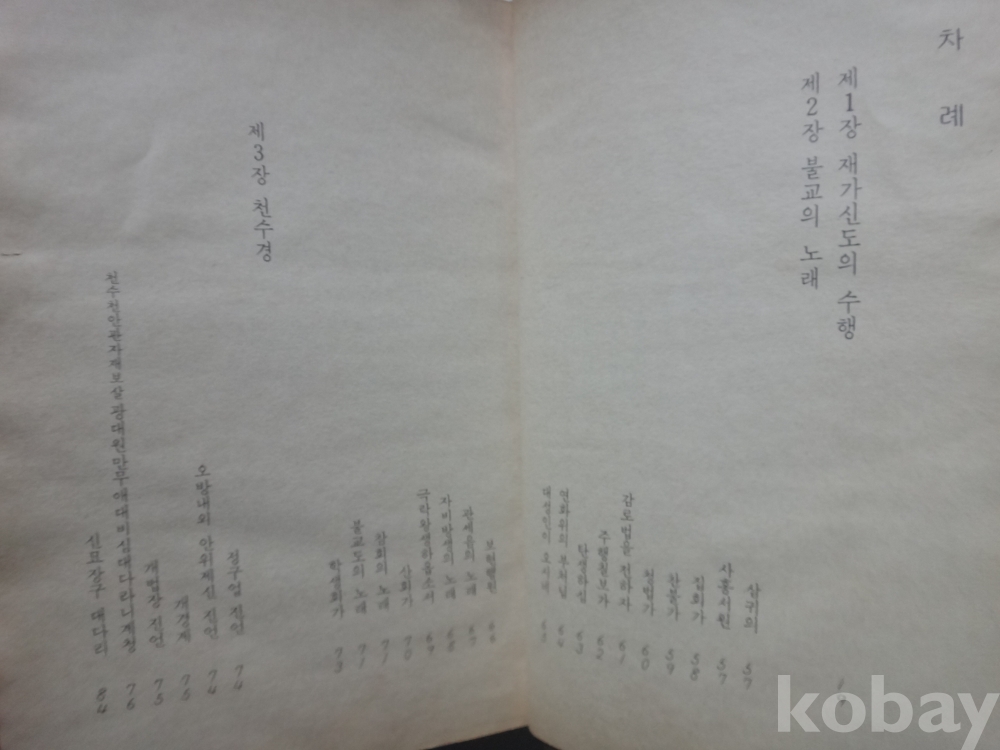 차 례
제1장 재가신도의 수행
제2장 불교의 노래
삼귀의 57
사홍서원 57
집회가 58
찬불가 59
청법가 60
감로법을 전하자 61
우란분절 62
산은 63
연화위의 부처님 64
보현행원 66
관세음의 노래 67
자비방생의 노래 68
극락왕생하옵소서 69
산회가 70
참회의 노래 71
불교도의 노래 71
학생회가 73
제3장 천수경
정구업 진언 74
오방내외 안위제신 진언 74
개경게 75
개법장 진언 75
천수천안관자재보살 광대원만무애대비심대다라니계청 76
신묘장구 대다라 84
kobay